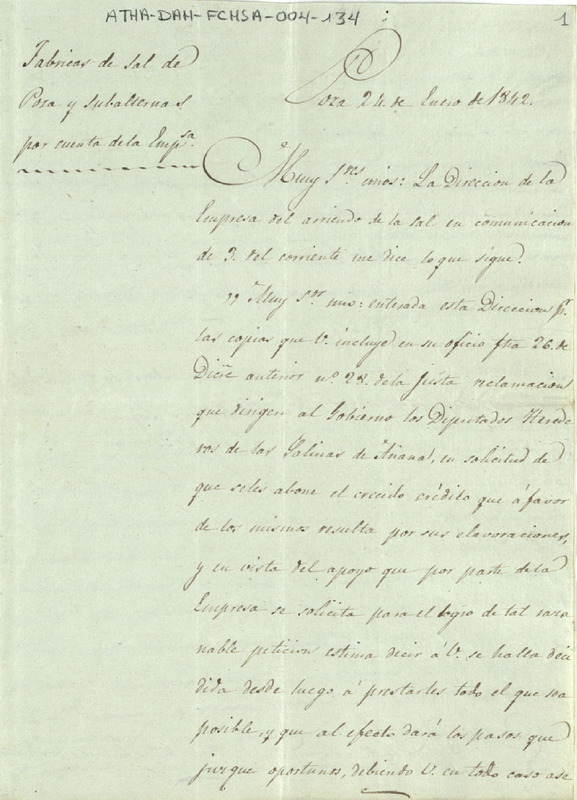 ATHA-DAH-FCHSA-004-134
1
Fabricas de sal de
Poza y subalternas
por cuenta de la Emp.sa
Poza 24. de Enero de 1842.
Muy S.res mios: La Direccion de la
Empresa del arriendo de la sal en comunicacion
de 3. del corriente me dice lo que sigue.
"Muy S.or mio: enterada esta Direccion p.r
las copias que V. incluye en su oficio fha 26. de
Dicre anterior nº 28. de la justa reclamacion
que dirigen al Gobierno los Diputados Herede
ros de las Salinas de Añana, en solicitud de
que seles abone el crecido crédito que á favor
de los mismos resulta por sus elavoraciones,
y en vista del apoyo que por parte de la
Empresa se solicita para el logro de tal razo
nable peticion estima decir á V. se halla deci
dida desde luego á prestarles todo el que sea
posible, y que al efecto dará los pasos que
juzgue oportunos, debiendo V. en todo caso ase